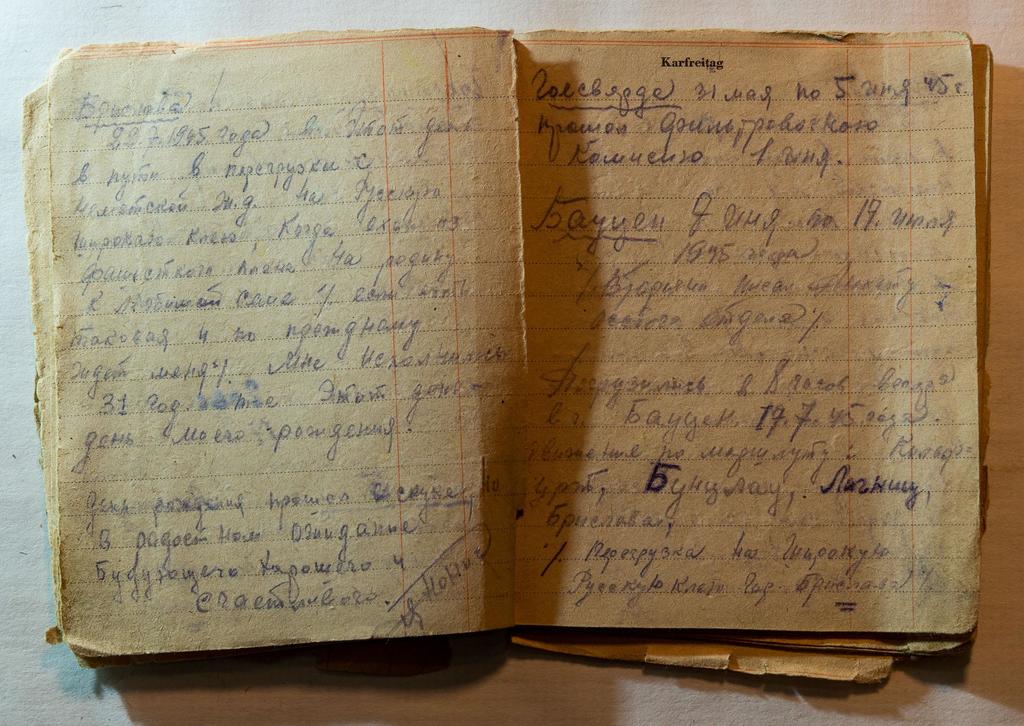 Брислова /
22.7.1945 года в Этот день
в пути в перегрузки с
неметской ж.д. на Русскую
широкаго клею, Когда ехал из
фашисткого плена на родину
к Любимой семе /. если есть
таковая и по прежднему
ждет меня /. Мне исполнилось
31 год. Этот день
день моего рождения.
День рождения прошол и скуке, но
в радостном ожидание
будующего хорошего и
счастливого.
Karfreitag
Гоесвярда 31 мая по 5 июня 45 г.
прошол фильтровоскою
Комисию 1 июня.
Бауцен 7 июня по 19. июля
1945 года
/ Вторично писал Анкету
особого отдела /.
/ Погрузились в 8 часов вечера
в г. Бауцен. 19.7.45 года.
движение по маршруту:
Бунцлау, Лигниц,
Бриславая,
/. Перегрузка на широкую
Русскую клею гор. Брислава /.